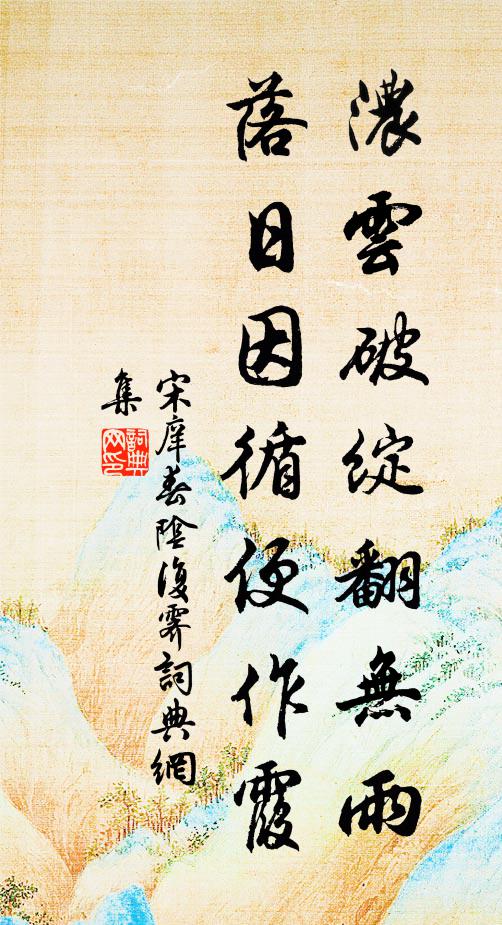 濃雲破綻翻無雨
落日因循便作霞
宋庠春陰復霽詞典網
集
詞典
网印